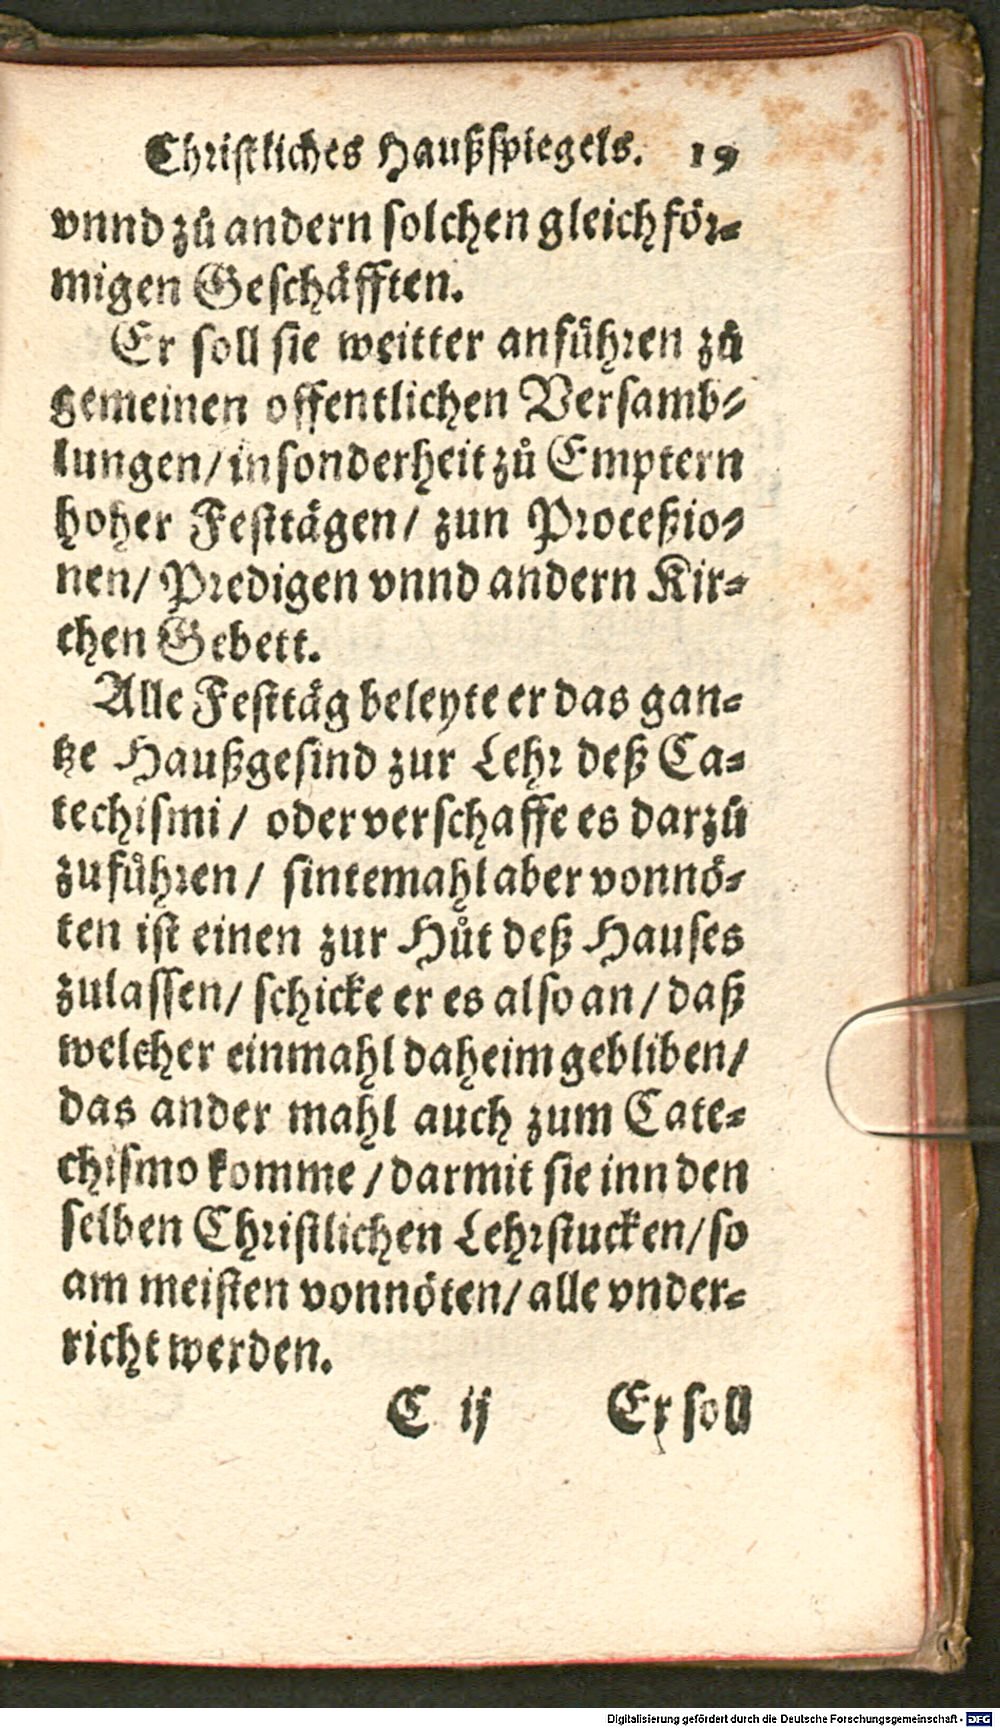 Christliches Haußspiegels. 19
vnnd zů andern solchen gleichför-
migen Geschäfften.
Er soll sie weitter anführen zů
gemeinen offentlichen Versamb-
lungen/ insonderheit zů Emptern
hoher Festtägen/ zun Proceßio-
nen/ Predigen vnnd andern Kir-
chen Gebett.
Alle Festtäg beleyte er das gan-
tze Haußgesind zur Lehr deß Ca-
techismi/ oder verschaffe es darzů
zuführen/ sintemahl aber vonnö-
ten ist einen zur Hůt deß Hauses
zulassen/ schicke er es also an/ daß
welcher einmahl daheim gebliben/
das ander mahl auch zum Cate-
chismo komme/ darmit sie inn den
selben Christlichen Lehrstucken/ so
am meisten vonnöten/ alle vnder-
richt werden.
C ij Er soll
Digitalisierung gefördert durch die Deutsche Forschungsgemeinschaft - DFG